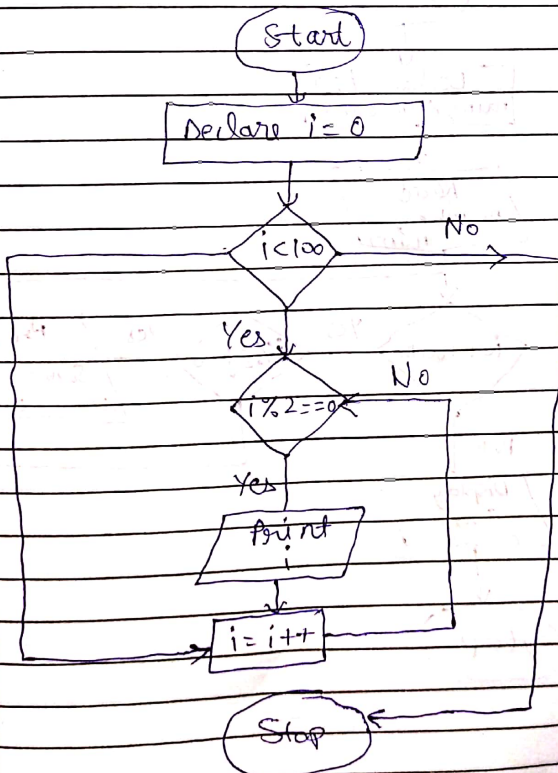 Start
Declare i = 0
i<100
No
Yes
i%2==0
No
Yes
Print
i
i = i++
Stop